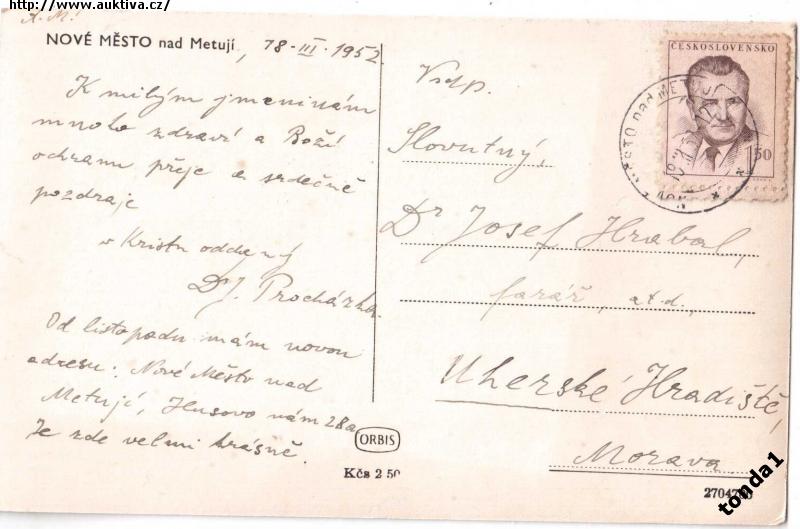 http://www.auktiva.cz/
K.M!
NOVÉ MĚSTO nad Metují, 18-III-1952
K milým jmeninám
mnoho zdraví a Boží
ochranu přeje a srdečně
pozdraje
v Kristu oddaný
Dr J. Procházka.
Od listopadu mám novou
adresu: Nové Město nad
Metují, Husovo nám 28a
Je zde velmi krásně.
Vsdp.
Slovutný,
Dr Josef Hrabal,
farář, atd.,
Uherské Hradiště,
Morava.
ČESKOSLOVENSKO
1.50
MĚSTO nad METUJÍ
ORBIS
Kčs 2 50
tonda1